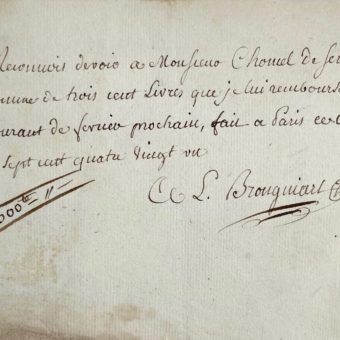 Reconnois devoir a Monsieur Chomel de Ser
mme de trois cent Livres que je lui rembours
ourant de fevrier prochain, fait a Paris ce
Sept cent quatre Vingt un
300#
L. Brongniart